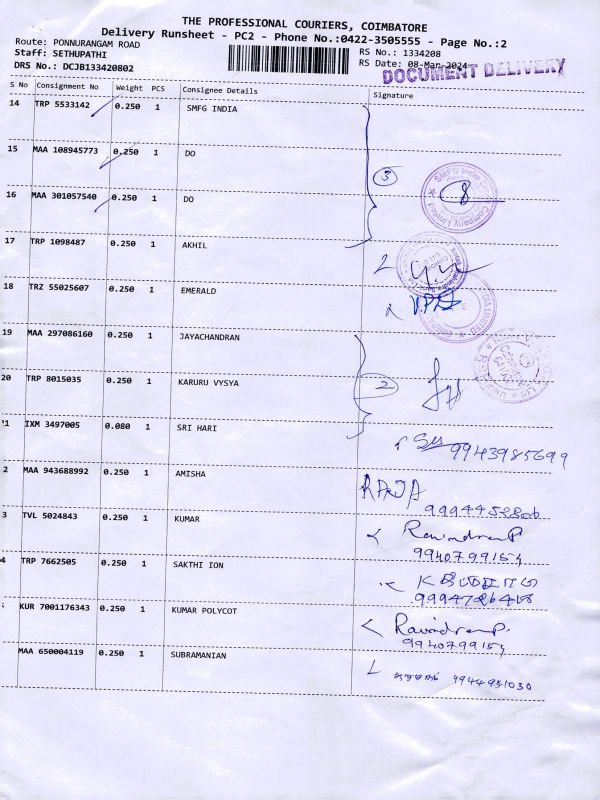 THE PROFESSIONAL COURIERS, COIMBATORE
Delivery Runsheet - PC2 - Phone No.:0422-3505555 - Page No.:2
Route: PONNURANGAM ROAD
Staff: SETHUPATHI
DRS No.: DCJB133420802
RS No.: 1334208
RS Date: 08-Mar-2024
DOCUMENT DELIVERY
S No Consignment No Weight PCS Consignee Details Signature
14 TRP 5533142 0.250 1 SMFG INDIA
15 MAA 108945773 0.250 1 DO
3
16 MAA 301057540 0.250 1 DO
SMFG India
Company Limited
17 TRP 1098487 0.250 1 AKHIL
2
18 TRZ 55025607 0.250 1 EMERALD
19 MAA 297086160 0.250 1 JAYACHANDRAN
20 TRP 8015035 0.250 1 KARURU VYSYA
2
1 IXM 3497005 0.080 1 SRI HARI
9943985699
2 MAA 943688992 0.250 1 AMISHA
RAJA
3 TVL 5024843 0.250 1 KUMAR
Ravindran P
9940799154
4 TRP 7662505 0.250 1 SAKTHI ION
KUR 7001176343 0.250 1 KUMAR POLYCOT
Ravindran P.
9940799154
MAA 650004119 0.250 1 SUBRAMANIAN
9944951030